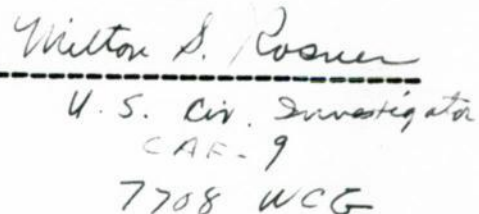 Milton S. Rosner
U. S. Civ. Investigator
CAF-9
7708 WCG